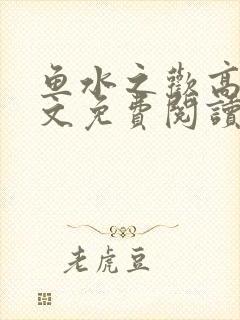 鱼水之歡高
文免費閱讀
老虎豆